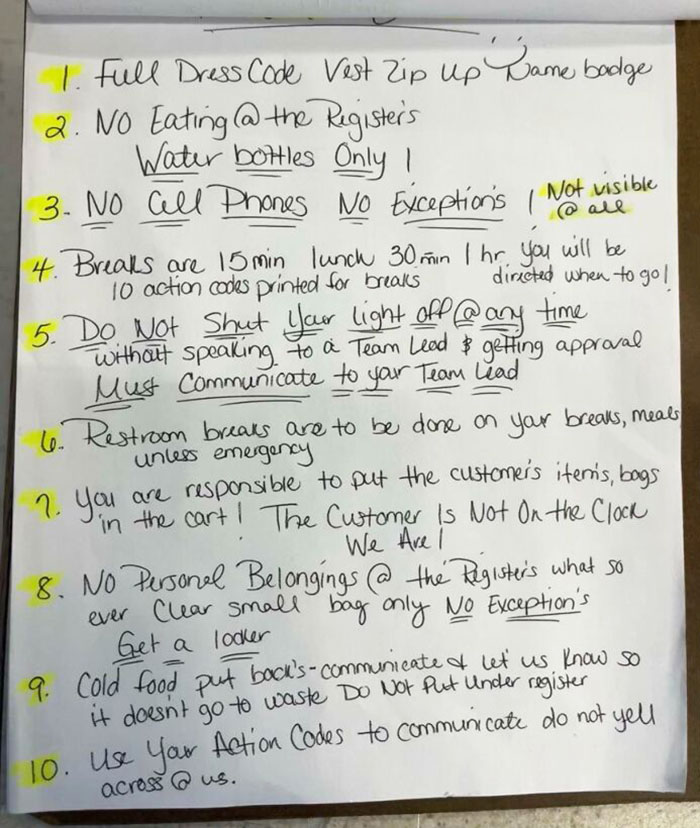 1. Full Dress Code Vest Zip Up Name badge
2. NO Eating @ the Register's
Water bottles Only !
3. NO Cell Phones No Exception's ! Not visible
@ all
4. Breaks are 15 min lunch 30 min 1 hr you will be
10 action codes printed for breaks directed when to go!
5. Do Not Shut Your light off @ any time
without speaking to a Team Lead & getting approval
Must Communicate to your Team Lead
6. Restroom breaks are to be done on your breaks, meals
unless emergency
7. You are responsible to put the customer's item's, bags
in the cart! The Customer Is Not On the Clock
We Are!
8. No Personal Belongings @ the Register's what so
ever Clear small bag only No Exception's
Get a locker
9. Cold food put back's - communicate & let us know so
it doesn't go to waste Do Not Put Under register
10. Use Your Action Codes to communicate do not yell
across @ us.